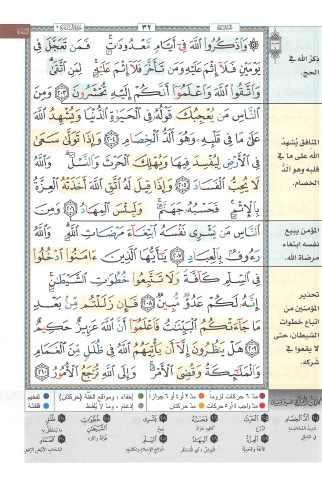 ٣٢
۞ وَاذْكُرُوا اللَّهَ فِي أَيَّامٍ مَعْدُودَاتٍ فَمَن تَعَجَّلَ فِي
يَوْمَيْنِ فَلَا إِثْمَ عَلَيْهِ وَمَن تَأَخَّرَ فَلَا إِثْمَ عَلَيْهِ لِمَنِ اتَّقَىٰ
وَاتَّقُوا اللَّهَ وَاعْلَمُوا أَنَّكُمْ إِلَيْهِ تُحْشَرُونَ ٢٠٣ وَمِنَ
النَّاسِ مَن يُعْجِبُكَ قَوْلُهُ فِي الْحَيَاةِ الدُّنْيَا وَيُشْهِدُ اللَّهَ
عَلَىٰ مَا فِي قَلْبِهِ وَهُوَ أَلَدُّ الْخِصَامِ ٢٠٤ وَإِذَا تَوَلَّىٰ سَعَىٰ
فِي الْأَرْضِ لِيُفْسِدَ فِيهَا وَيُهْلِكَ الْحَرْثَ وَالنَّسْلَ وَاللَّهُ
لَا يُحِبُّ الْفَسَادَ ٢٠٥ وَإِذَا قِيلَ لَهُ اتَّقِ اللَّهَ أَخَذَتْهُ الْعِزَّةُ
بِالْإِثْمِ فَحَسْبُهُ جَهَنَّمُ وَلَبِئْسَ الْمِهَادُ ٢٠٦ وَمِنَ
النَّاسِ مَن يَشْرِي نَفْسَهُ ابْتِغَاءَ مَرْضَاتِ اللَّهِ وَاللَّهُ
رَءُوفٌ بِالْعِبَادِ ٢٠٧ يَا أَيُّهَا الَّذِينَ ءَامَنُوا ادْخُلُوا
فِي السِّلْمِ كَافَّةً وَلَا تَتَّبِعُوا خُطُوَاتِ الشَّيْطَانِ
إِنَّهُ لَكُمْ عَدُوٌّ مُبِينٌ ٢٠٨ فَإِن زَلَلْتُم مِن بَعْدِ
مَا جَاءَتْكُمُ الْبَيِّنَاتُ فَاعْلَمُوا أَنَّ اللَّهَ عَزِيزٌ حَكِيمٌ
٢٠٩ هَلْ يَنظُرُونَ إِلَّا أَن يَأْتِيَهُمُ اللَّهُ فِي ظُلَلٍ مِنَ الْغَمَامِ
وَالْمَلَائِكَةُ وَقُضِيَ الْأَمْرُ وَإِلَى اللَّهِ تُرْجَعُ الْأُمُورُ ٢١٠
ذِكرُ الله في
الحج.
المنافق يُشهدُ
الله على ما في
قلبه وهو ألدّ
الخصام.
المؤمن يبيع
نفسه ابتغاء
مرضاة الله.
تحذير
المؤمنين من
اتباع خطوات
الشيطان، حتى
لا يقعوا في
شركه.
مدّ ٦ حركات لزوماً
مدّ ٢ أو ٤ أو ٦ جوازاً
إخفاء، ومواقع الغُنَّة (حركتان)
تفخيم
مدّ واجب ٤ أو ٥ حركات
مدّ حركتان
إدغام، وما لا يُلفَظ
قلقلة